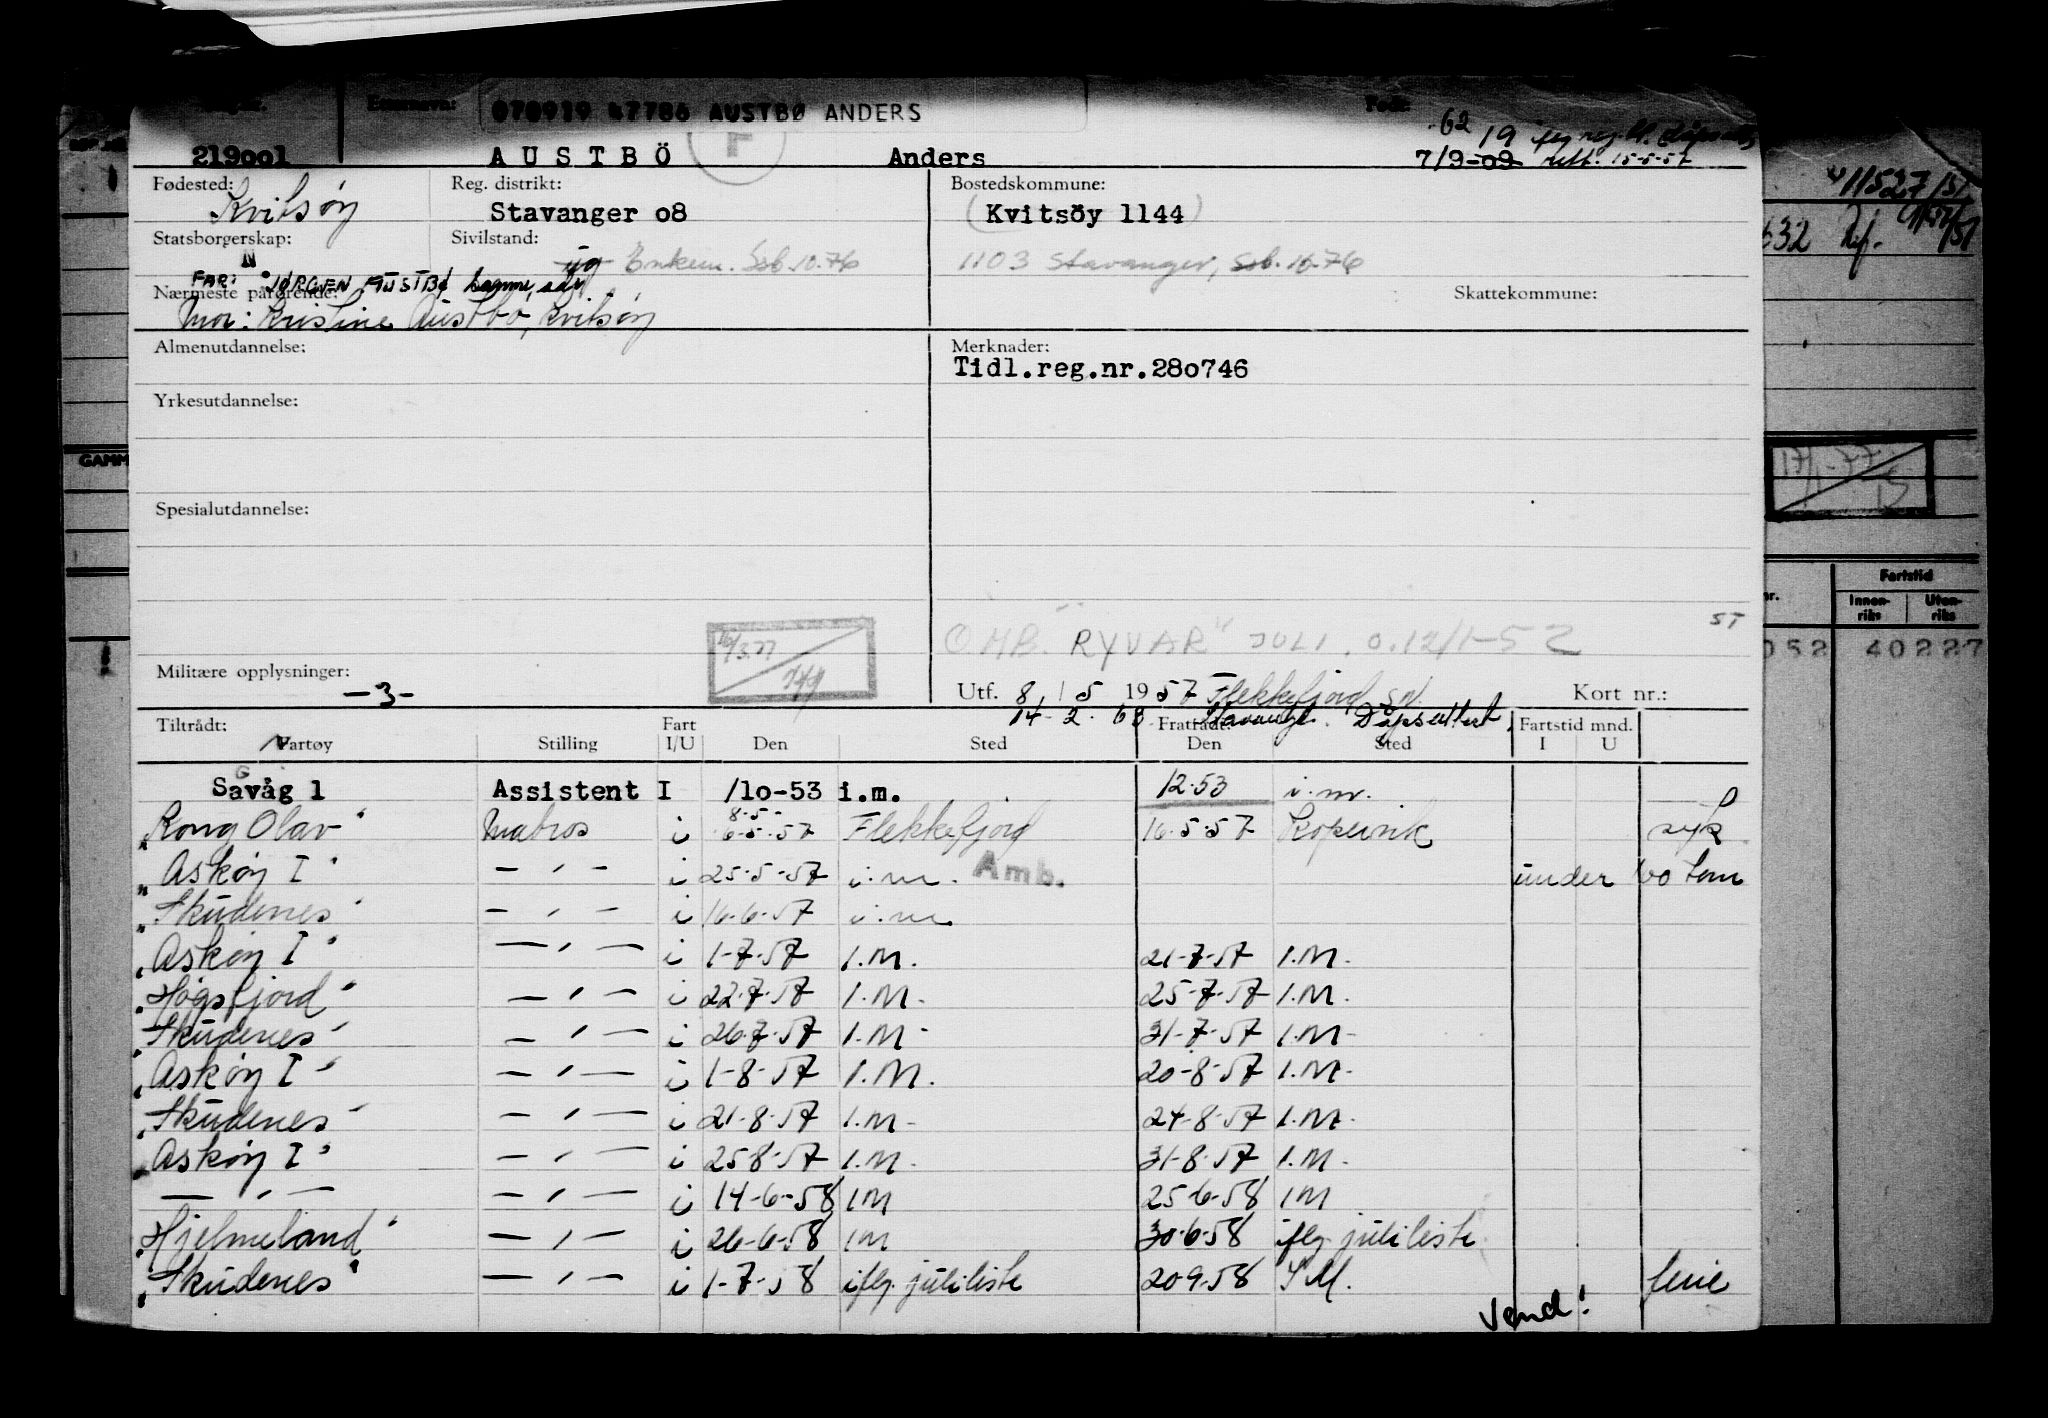 Etternavn: 070919 47786 AUSTBØ ANDERS Født:
62 19 iflg reg.
219001 AUSTBÖ F Anders 7/9-09 rett. 15-5-57
Fødested: Kvitsøy Reg. distrikt: Stavanger 08 Bostedskommune: (Kvitsöy 1144)
11527/51
632
Statsborgerskap: N Sivilstand: ug Enkem. Ssb. 10.76 1103 Stavanger, Ssb. 10.76
FAR: JØRGEN AUSTBØ samme adr.
Nærmeste pårørende: Skattekommune:
Mor: Kristine Austbø, Kvitsøy
Almenutdannelse: Merknader:
Tidl.reg.nr.280746
Yrkesutdannelse:
GAMM 17/1-77
Spesialutdannelse:
Fartstid
Innen-riks Uten-riks
052 40227
OMB. "RYVAR" JULI. O.12/1-52 ST
Militære opplysninger: -3- Utf. 8/5 1957 Flekkefjord Kort nr.:
14-2.68 Stavanger. Dåpsattest
Tiltrådt: Fart Fratrådt: Fartstid mnd.
Fartøy Stilling I/U Den Sted Den Sted I U
Savåg 1 Assistent I /10-53 i.m. 12.53 i.m.
8-5-
"Rong Olav" Matros i 6-5-57 Flekkefjord 16-5-57 Kopervik syk
"Askøy I" — " — i 25-5-57 i.m. Amb. under 100 tonn
"Skudenes" — " — i 16-6-57 i.m
"Askøy I" — " — i 1-7-57 I.M. 21-7-57 I.M.
"Høgsfjord" — " — i 22-7-57 I.M. 25-7-57 I.M.
"Skudenes" — " — i 26-7-57 I.M. 31-7-57 I.M.
"Askøy I" — " — i 1-8-57 I.M. 20-8-57 I.M.
"Skudenes" — " — i 21-8-57 I.M. 24-8-57 I.M.
"Askøy I" — " — i 25-8-57 I.M. 31-8-57 I.M.
— " — — " — i 14-6-58 IM 25-6-58 IM
"Hjelmeland" — " — i 26-6-58 IM 30-6-58 iflg. juliliste
"Skudenes" — " — i 1-7-58 iflg. juliliste 20-9-58 I M. ferie
Vend!